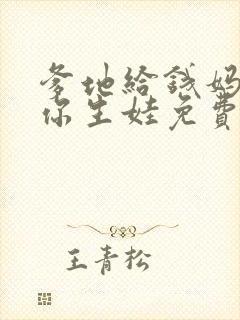 爹地給錢妈
你生娃免費
王青松